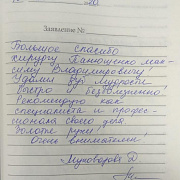 Заявление №
Большое спасибо
хирургу Панюшенко Мак-
симу Владимировичу!
Удалил зуб мудрости
быстро и безболезненно
Рекомендую как
специалиста и профес-
сионала своего дела
Золотые руки!
Очень внимателен!